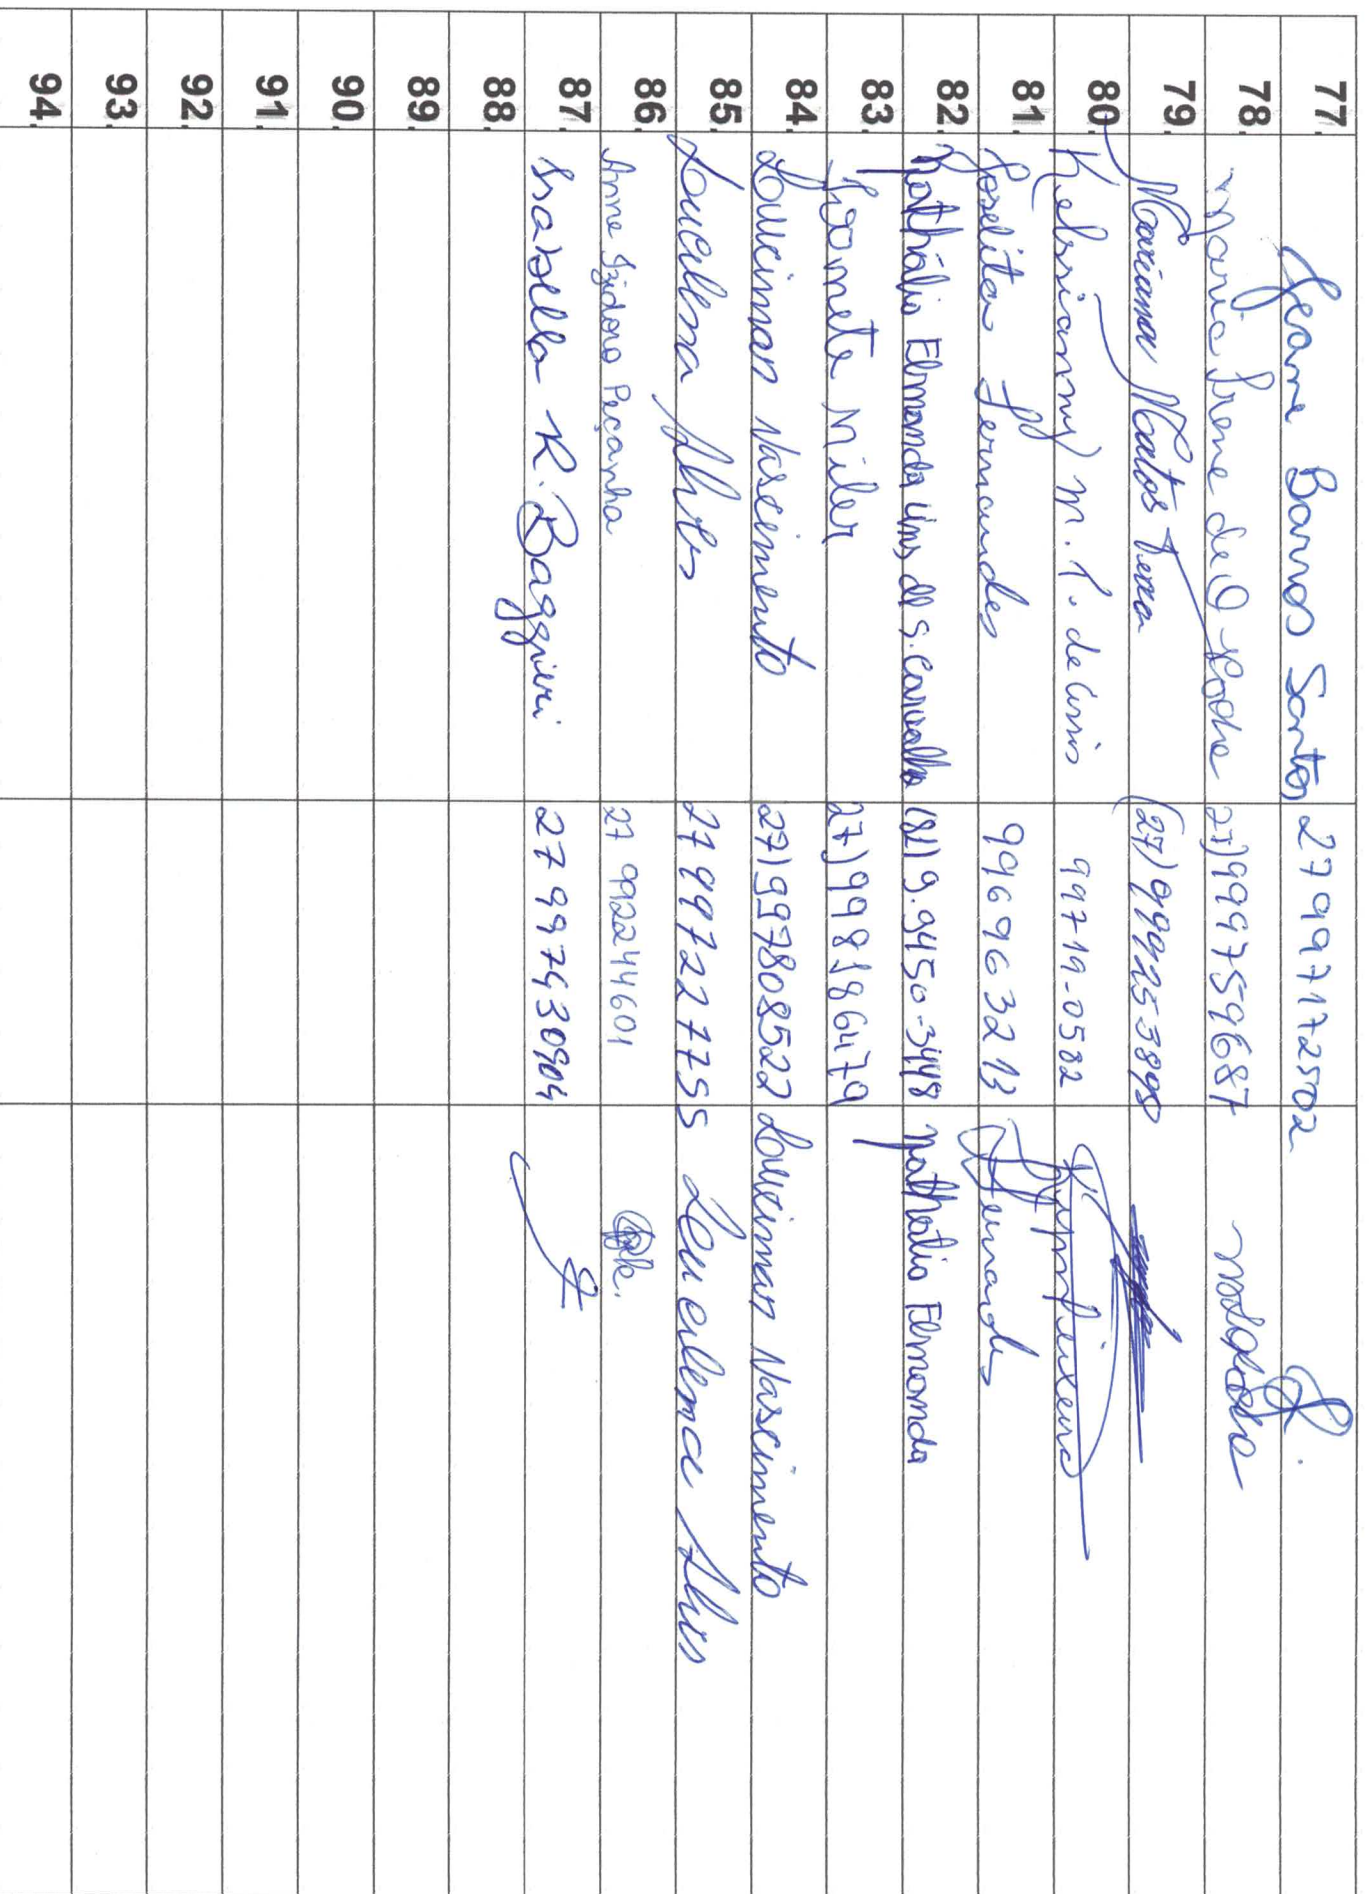 77. Jeane Barros Santos 27997172502
78. Maria Irene de O Rocha 27)999759687
79. Mariana Matos (27)999253898
80. Kelsianny M. T. de Assis 99719-0582
81. Joselita Fernandes 996963213 Fernandes
82. Nathália Elmanda Lins de S. Carvalho (81)9.9450-3448 Nathalia Elmanda
83. Joanete Miler 27)998186479
84. Loucimar Nascimento 27)997808522 Loucimar Nascimento
85. Loucilena Alves 27997227755 Loucilena Alves
86. Anne Izidoro Peçanha 27 992244601
87. Isabella R. Baggieri 27997430904
88.
89.
90.
91.
92.
93.
94.